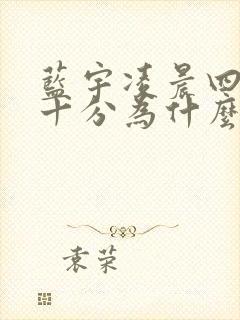 藍宇凌晨四
十分為什麼
袁荣